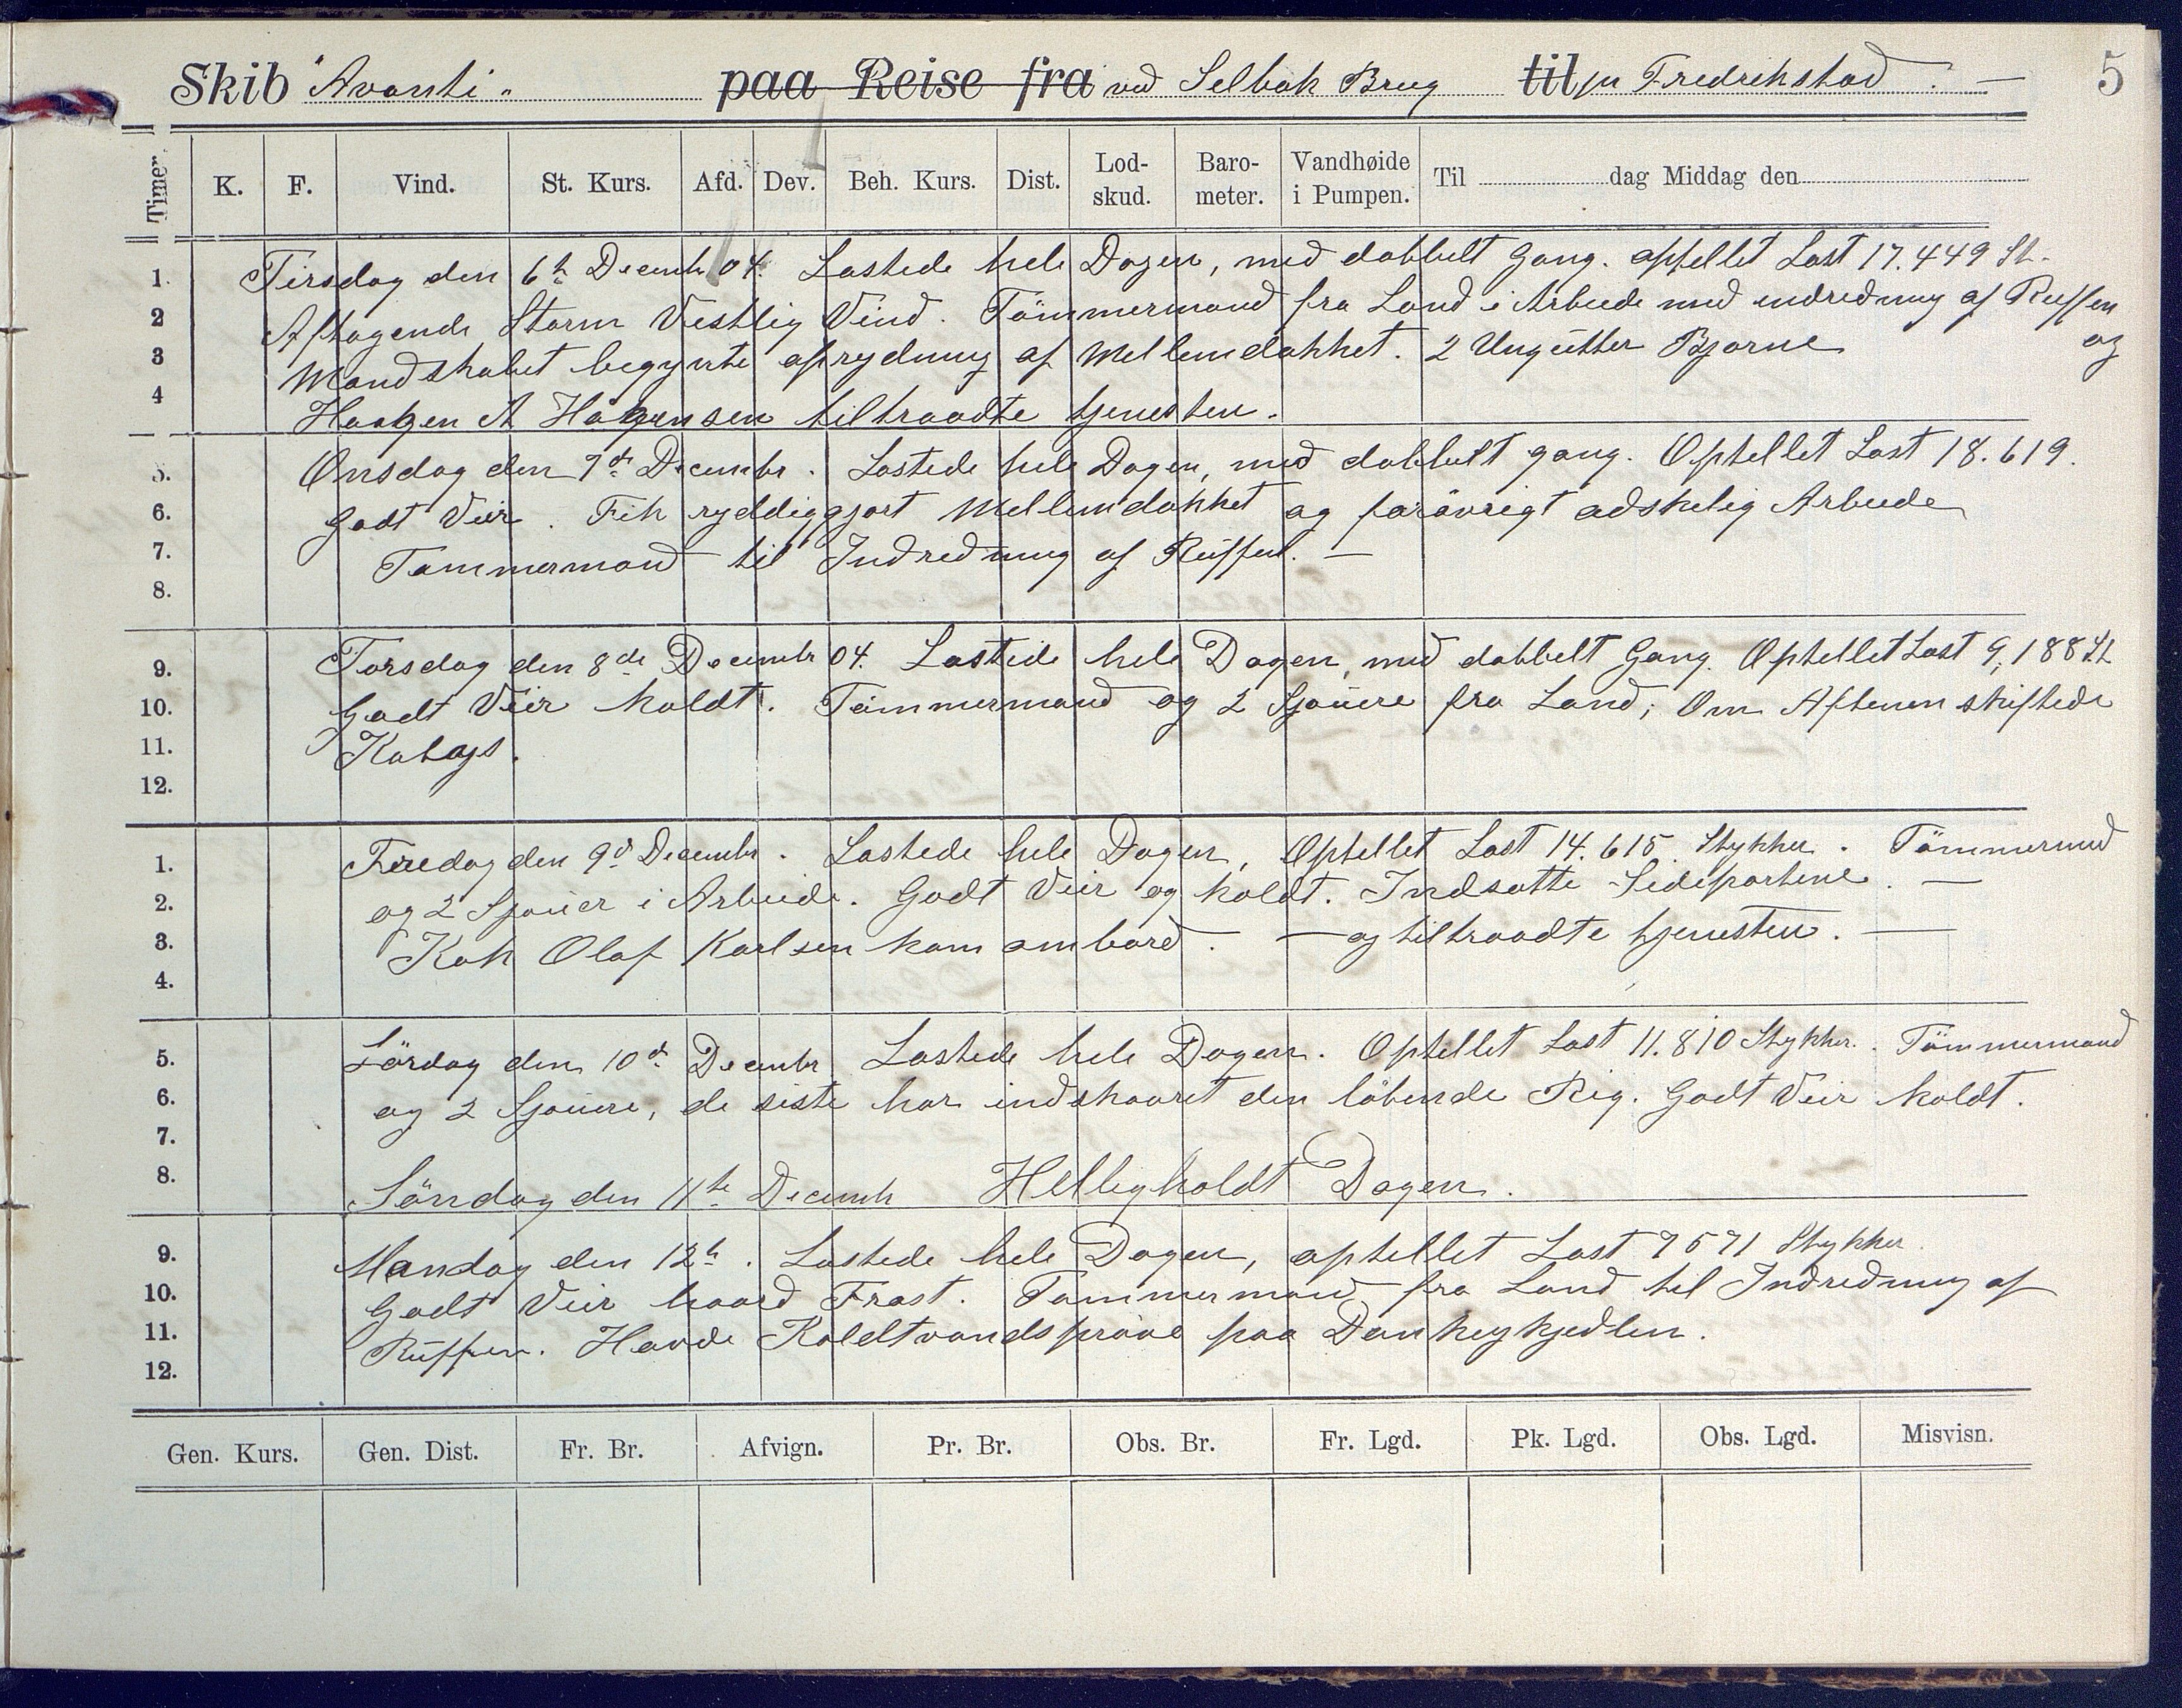 Skib "Avanti" paa Reise fra ved Selbak Brug til pr Fredrikstad. — 5
Timer. K. F. Vind. St. Kurs. Afd. Dev. Beh. Kurs. Dist. Lod-skud. Baro-meter. Vandhøide i Pumpen. Til dag Middag den
1. Tirsdag den 6te Decembr 04. Lastede hele Dagen, med dobbelt Gang. optellet Last 17.449 St.
2 Aftagende Storm Vestlig Vind. Tömmermand fra Land i Arbeide med indredning af Ruffen
3 Mandskabet begynte oprydning af Mellemdækket. 2 Ungutter Bjarne og
4 Haagen A Hagensen tiltraadte tjenesten.
5. Onsdag den 7de Decembr. Lastede hele Dagen, med dobbelt gang. Optellet Last 18.619.
6. Godt Veir. Fik ryddiggjort Mellemdækket og forövrigt adskelig Arbeide
7. Tømmermand til Indredning af Ruffen. —
8.
9. Torsdag den 8de Decembr 04. Lastede hele Dagen, med dobbelt Gang. Optellet Last 9,188 St
10. Godt Veir koldt. Tömmermand og 2 Sjauere fra Land; Om Aftenen skiftede
11. Kahags.
12.
1. Fredag den 9d Decembr. Lastede hele Dagen, Optellet Last 14.615. Stykker. Tömmermed
2. og 2 Sjauer i Arbeide. Godt Veir og koldt. Indsatte Sideportene. —
3. Kok Olaf Karlsen kom ombord. — og tiltraadte tjenesten. —
4.
5. Lördag den 10d Decembr Lastede hele Dagen. Optellet Last 11.810 Stykker. Tömmermand
6. og 2 Sjauere, de siste har indskaaret den löbende Rig. Godt Veir koldt.
7.
8. Söndag den 11te Decembr Helligholdt Dagen.
9. Mandag den 12te. Lastede hele Dagen, optellet Last 7571 Stykker
10. Godt Veir haard Frost. Tømmermand fra Land til Indredning af
11. Ruffen. Havde Koldtvandspröve paa Donkeykjedlen.
12.
Gen. Kurs. Gen. Dist. Fr. Br. Afvign. Pr. Br. Obs. Br. Fr. Lgd. Pk. Lgd. Obs. Lgd. Misvisn.